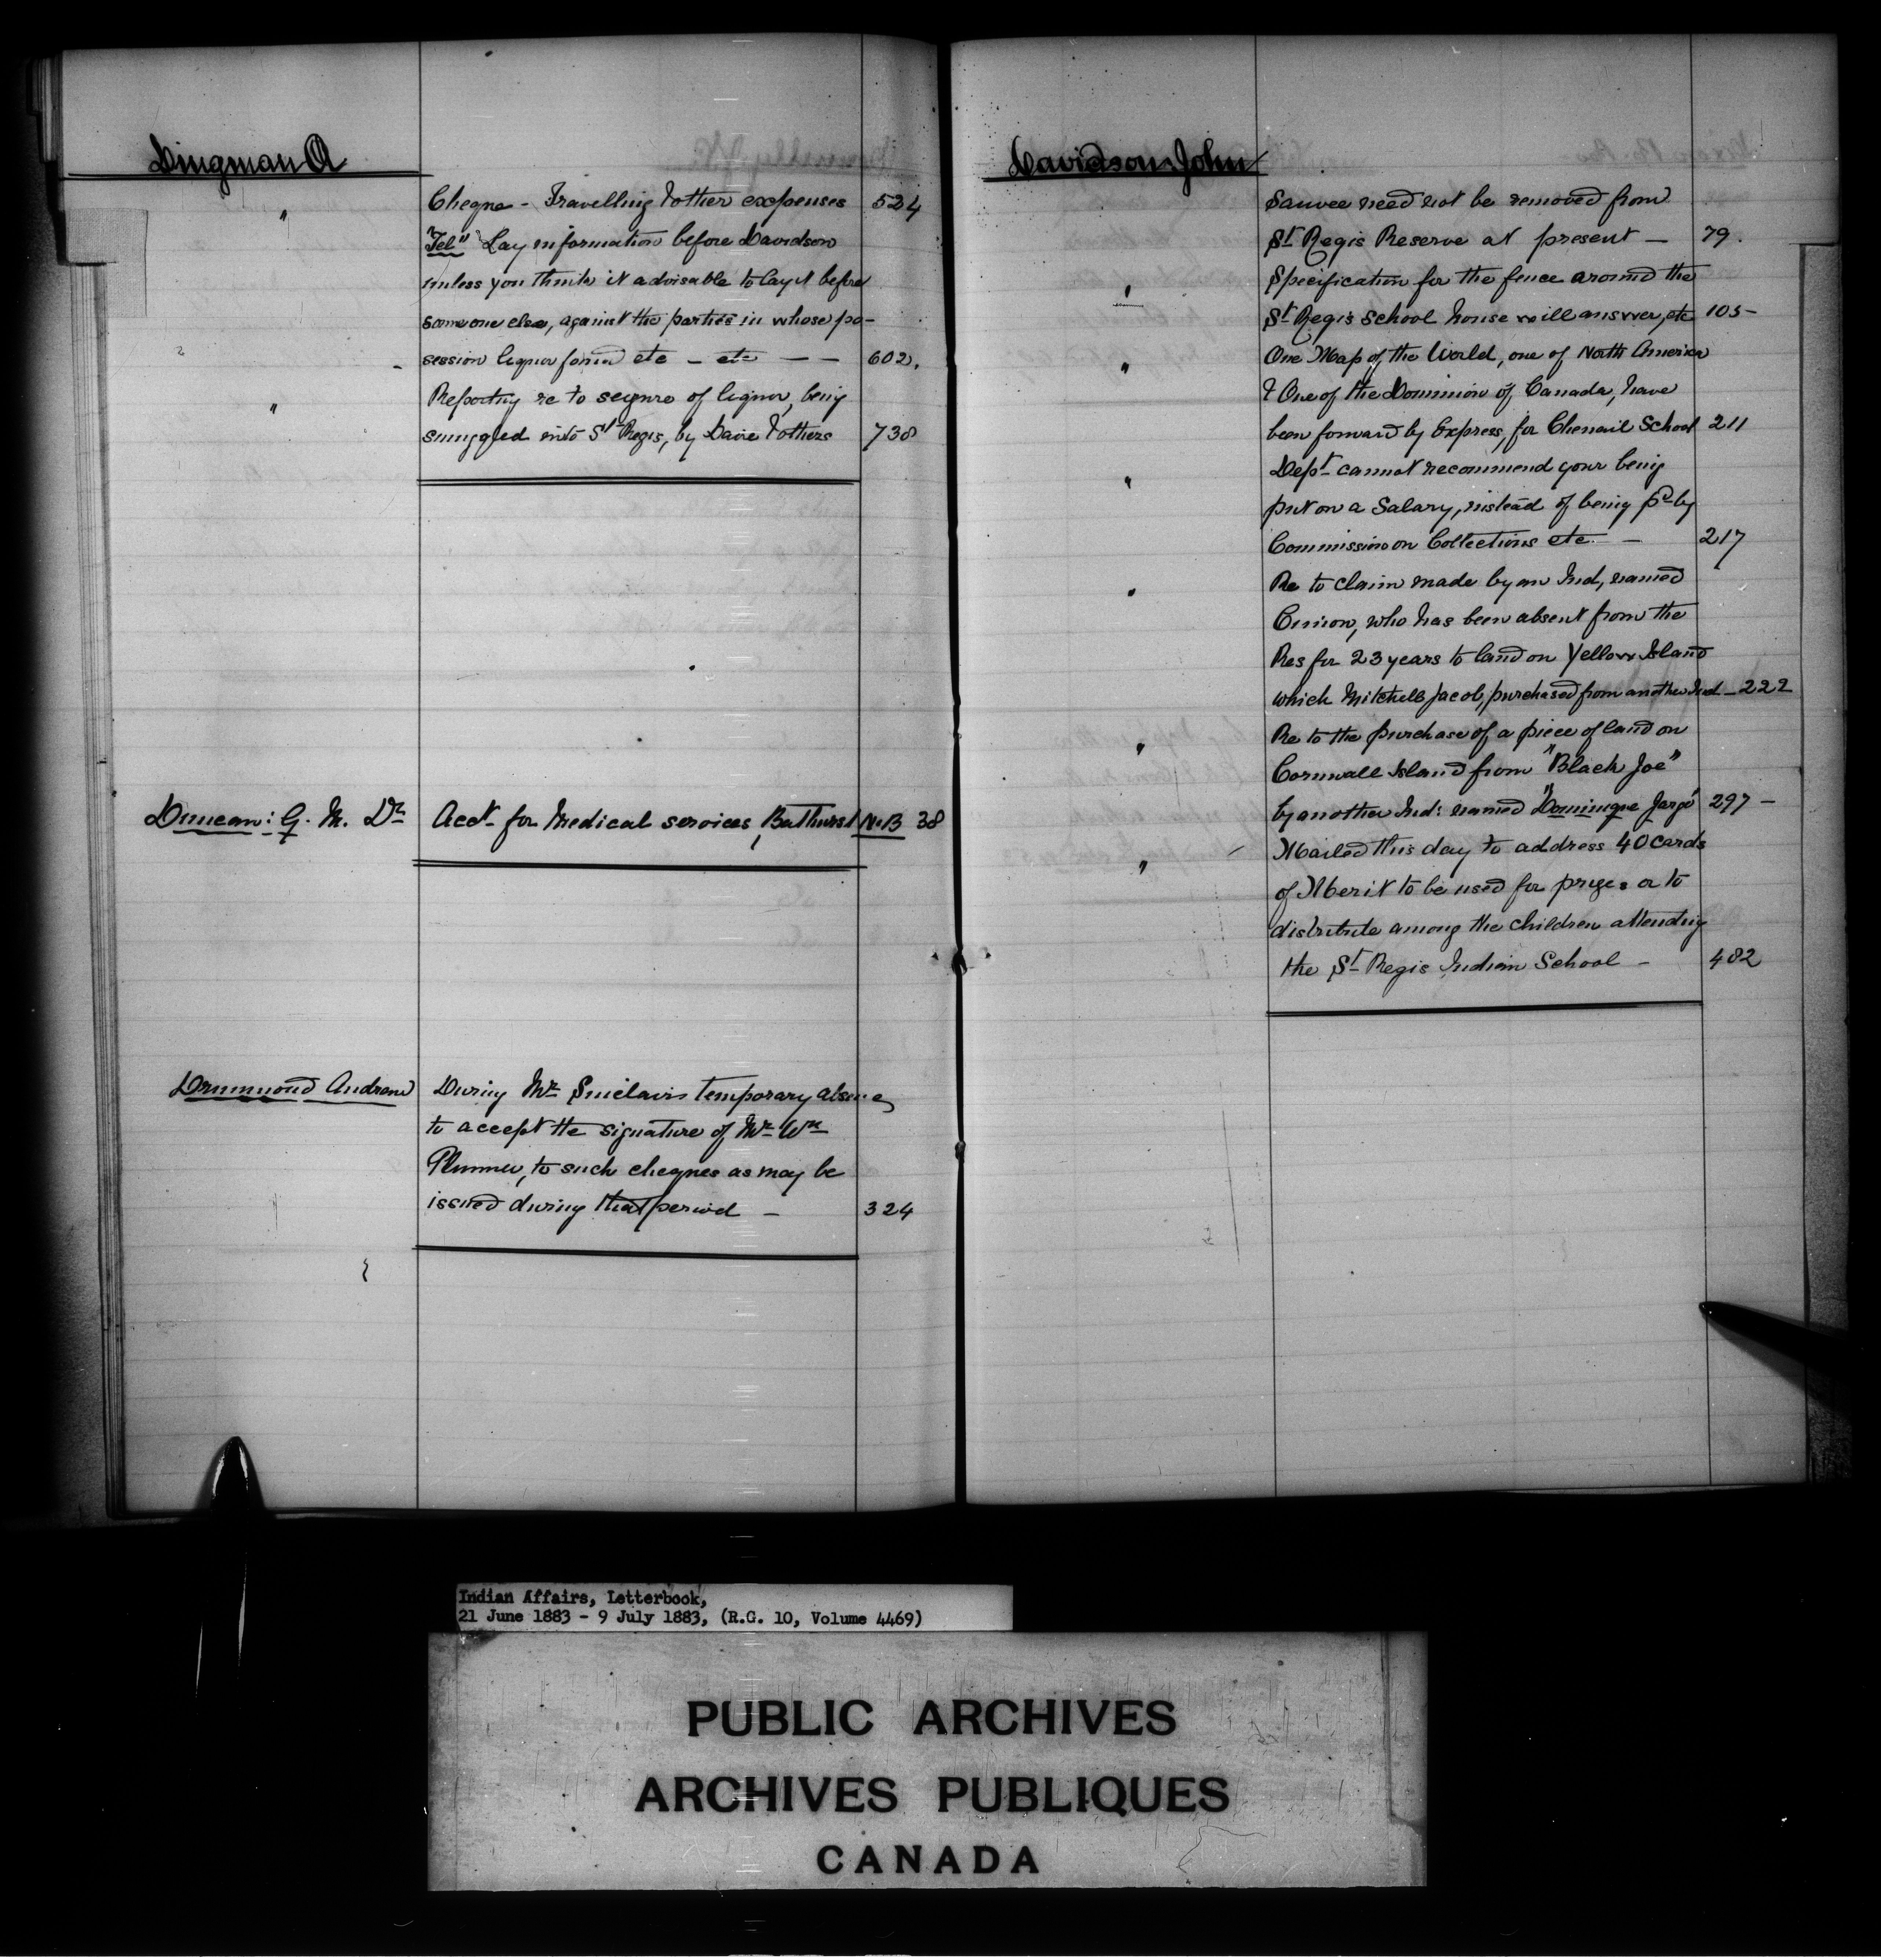 Dingman A
" Cheque - Travelling & other expenses 524
"Tel" Lay information before Davidson
unless you think it advisable to lay it before
some one else, against the parties in whose po-
session liquor found etc - etc - - 602.
" Reporting re to seizure of liquor, being
smuggled into St Regis, by & others 738
Duncan: G. M. Dr Acct for Medical services, Bathurst N.B 38
Drummond Andrew During Mr Sinclairs temporary absence
to accept the signature of Mr Wm
Plummer, to such cheques as may be
issued during that period - 324
Davidson John
Sauvee need not be removed from
St Regis Reserve at present - 79.
" Specification for the fence around the
St Regis School house will answer, etc 105-
" One Map of the World, one of North America
& One of the Dominion of Canada, have
been forward by Express, for Chenail School 211
" Dept cannot recommend your being
put on a Salary, instead of being pd by
Commission on Collections etc. - 217
" Re to claim made by an Ind, named
who has been absent from the
Res for 23 years to land on Yellow Island
which Mitchell Jacob, purchased from another Ind - 222
" Re to the purchase of a piece of land on
Cornwall Island from "Black Joe"
by another Ind: named "Dominique 297 -
" Mailed this day to address 40 Cards
of Merit to be used for prizes or to
distribute among the children attending
the St Regis Indian School - 482
Indian Affairs, Letterbook,
21 June 1883 - 9 July 1883, (R.G. 10, Volume 4469)
PUBLIC ARCHIVES
ARCHIVES PUBLIQUES
CANADA